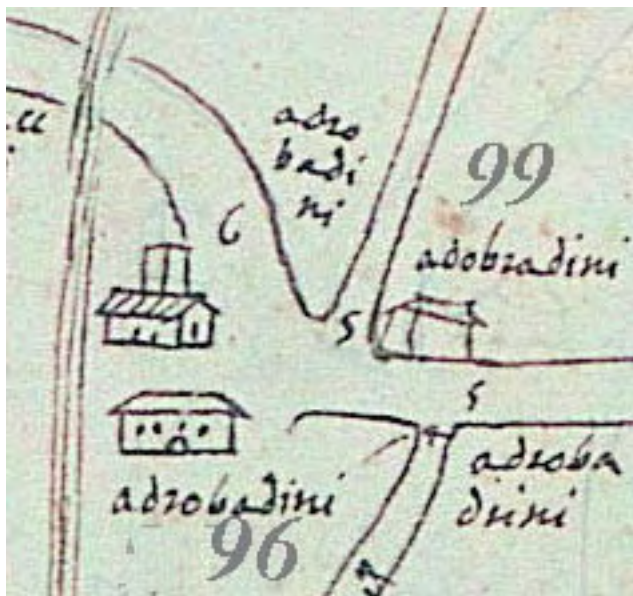 adro
badi
ni
99
6
adobradini
5
5
adrobadini
adroba
dini
96